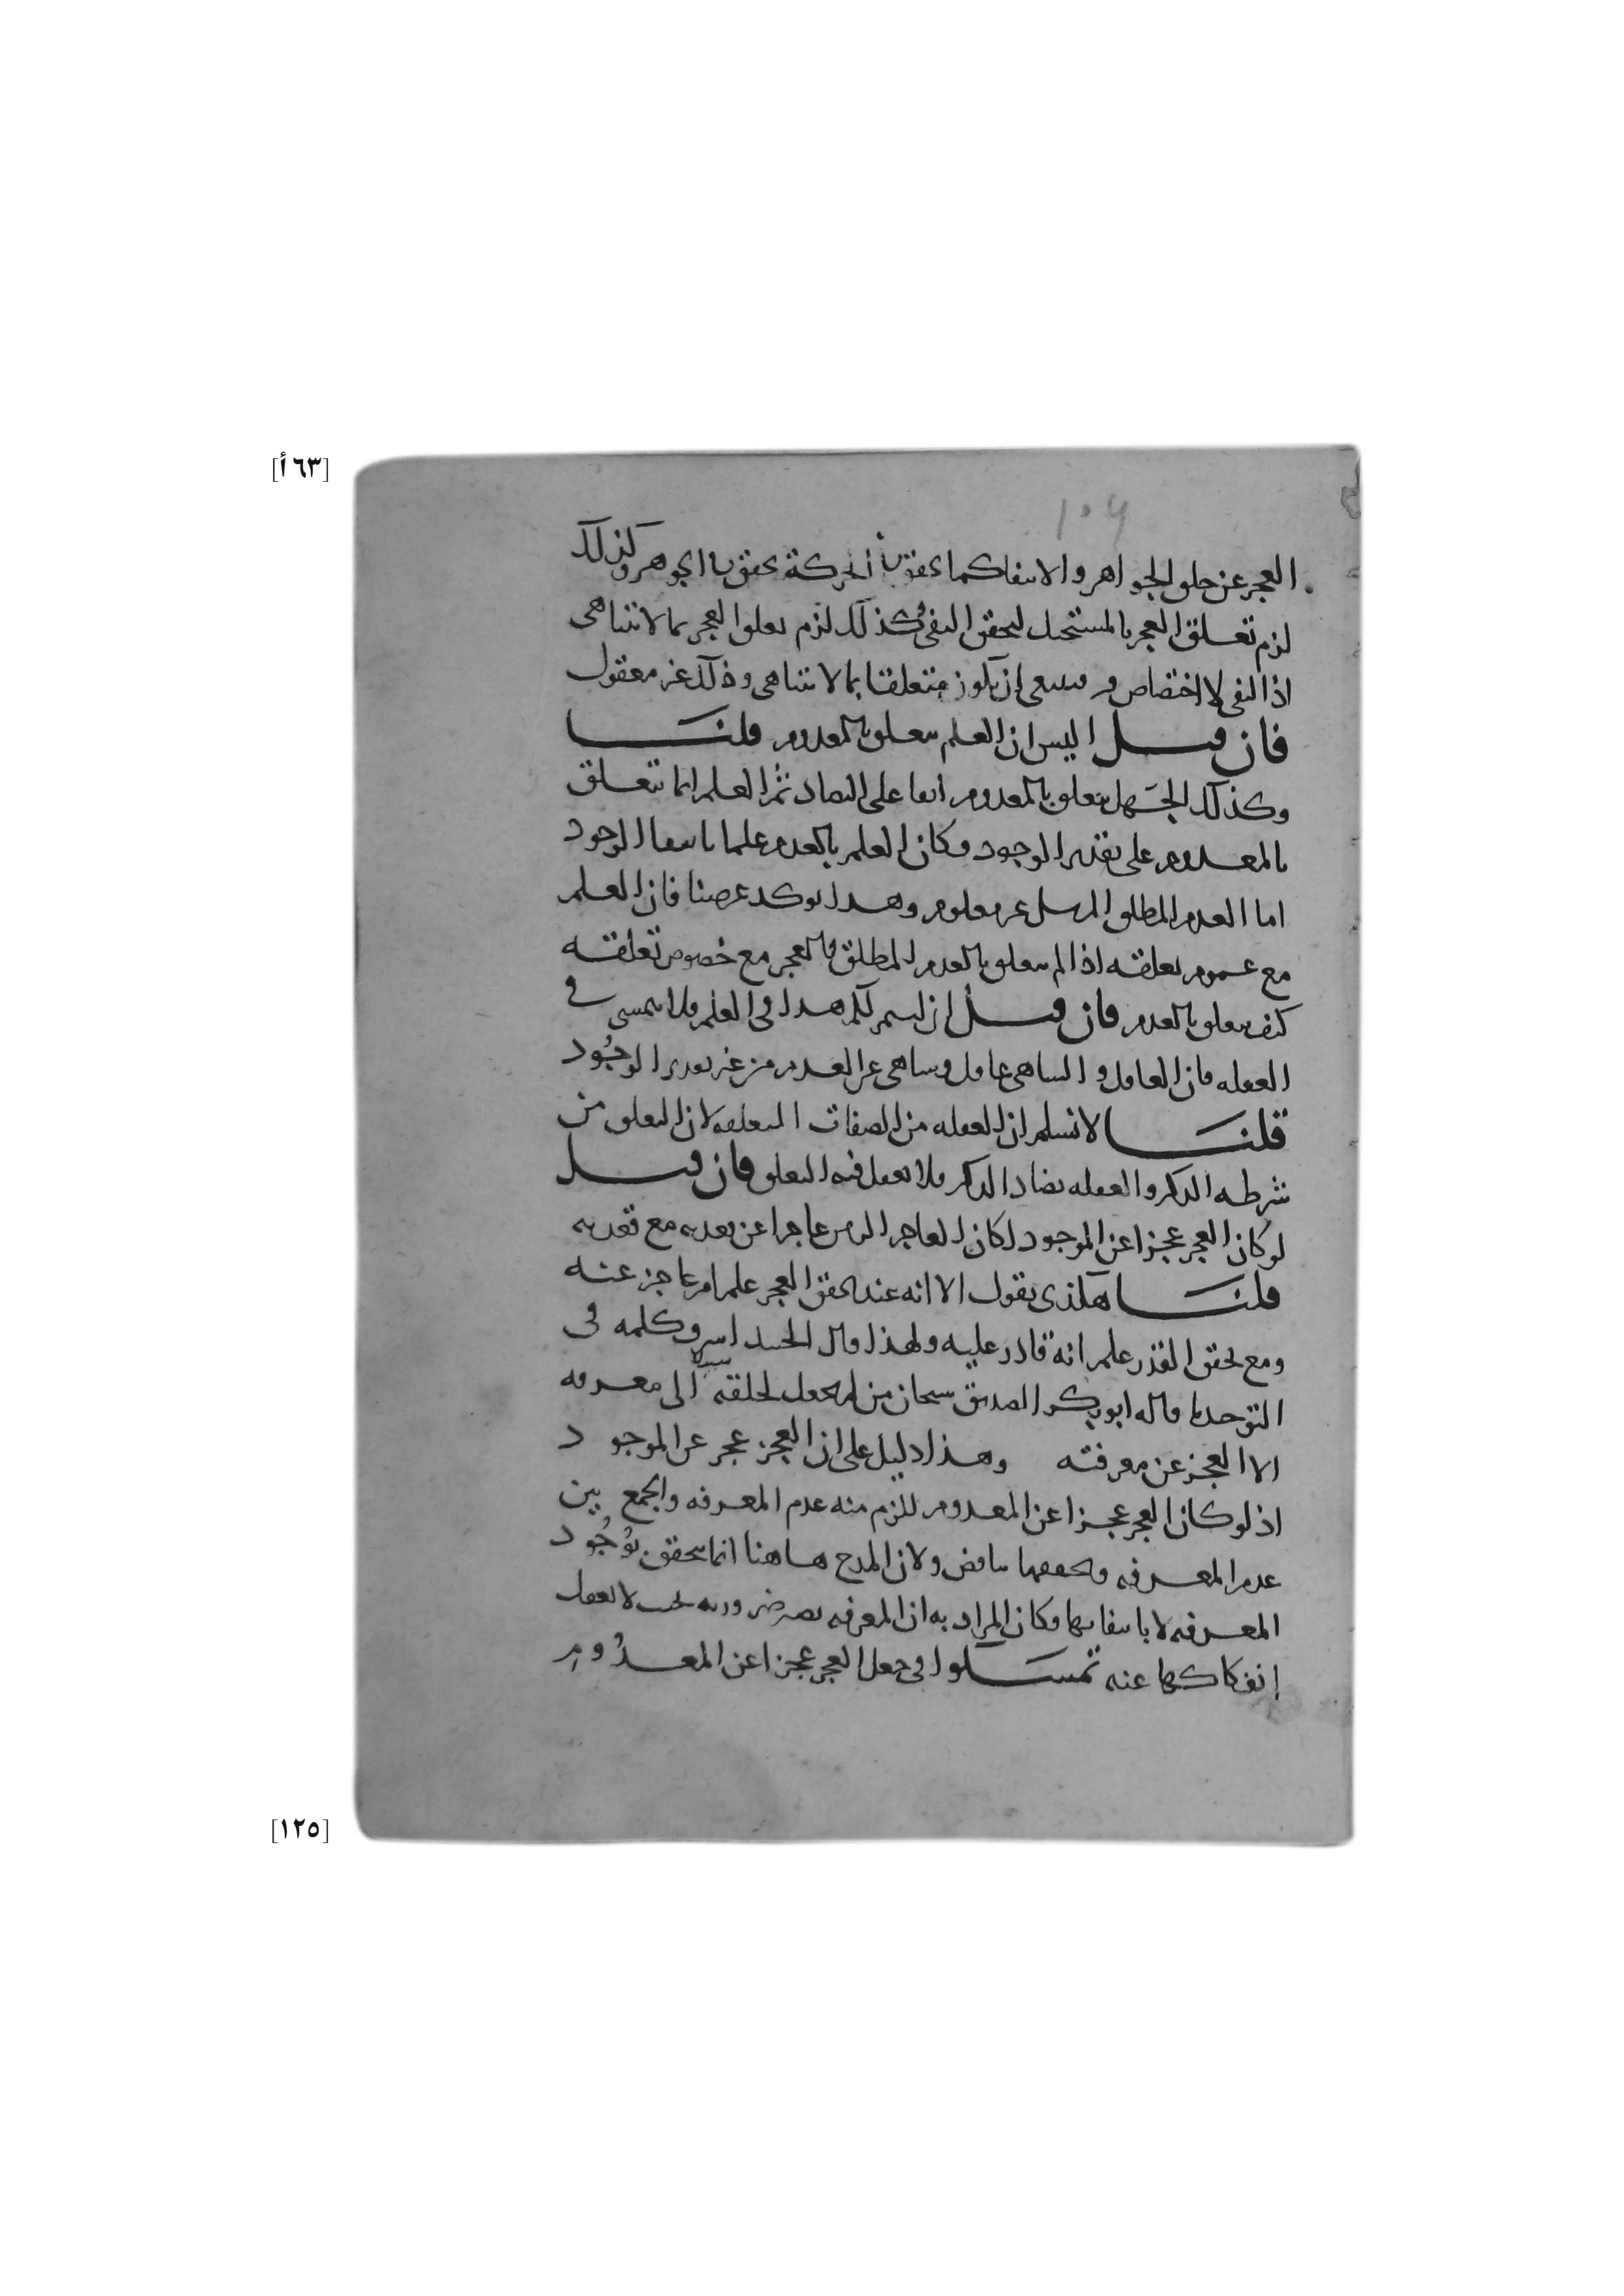 [٦٣أ]
١٠٩
العجز عن خلق الجواهر والانتفا كما تحقق بالحركة تحقق بالجوهر وكذلك
لزم تعلق العجز بالمستحيل لتحقق النفي وكذلك لزم تعلق العجز بما لا يتناهى
اذ النفي لا اختصاص فينبغي ان يكون متعلقا بما لا يتناهى وذلك غير معقول
فان قيل اليس ان العلم يتعلق بالمعدوم قلنا
وكذلك الجهل يتعلق بالمعدوم على التضاد ثم العلم انما يتعلق
بالمعدوم على تقدير الوجود وكان العلم بالعدم علما بانتفا الوجود
اما العدم المطلق المرسل غير معلوم وهذا يوكد غرضنا فان العلم
مع عموم تعلقه اذا لم يتعلق بالعدم المطلق فالعجز مع خصوص تعلقه
كيف يتعلق بالعدم فان قيل ان استمر لكم هذا في العلم فلا يتمشى في
الغفله فان الغافل والساهي غافل وساهي عن العدم من غير تقدير الوجود
قلنا لا نسلم ان الغفله من الصفات المتعلقه لان التعلق من
شرطه الذكر والغفله تضاد الذكر فلا يعقل فيه التعلق فان قيل
لو كان العجز عجزا عن الموجود لكان العاجز الزمن عاجزا عن قعوده مع قعوده
قلنا هكذي نقول الا انه عند تحقق العجز علم انه عاجز عنه
ومع تحقق القدر علم انه قادر عليه ولهذا قال الجنيد اشرف كلمه في
التوحيد ما قاله ابو بكر الصديق سبحان من لم يجعل لخلقه سبيلا الى معرفته
الا العجز عن معرفته وهذا دليل على ان العجز عجز عن الموجود
اذ لو كان العجز عجزا عن المعدوم للزم منه عدم المعرفه والجمع بين
عدم المعرفه وتحققها تناقض ولان المدح هاهنا انما يتحقق بوجود
المعرفه لا بانتفايها وكان المراد به ان المعرفه تصير ضروريه بحيث لا يعقل
انفكاكها عنه تمسكوا في جعل العجز عجزا عن المعدوم
[١٢٥]